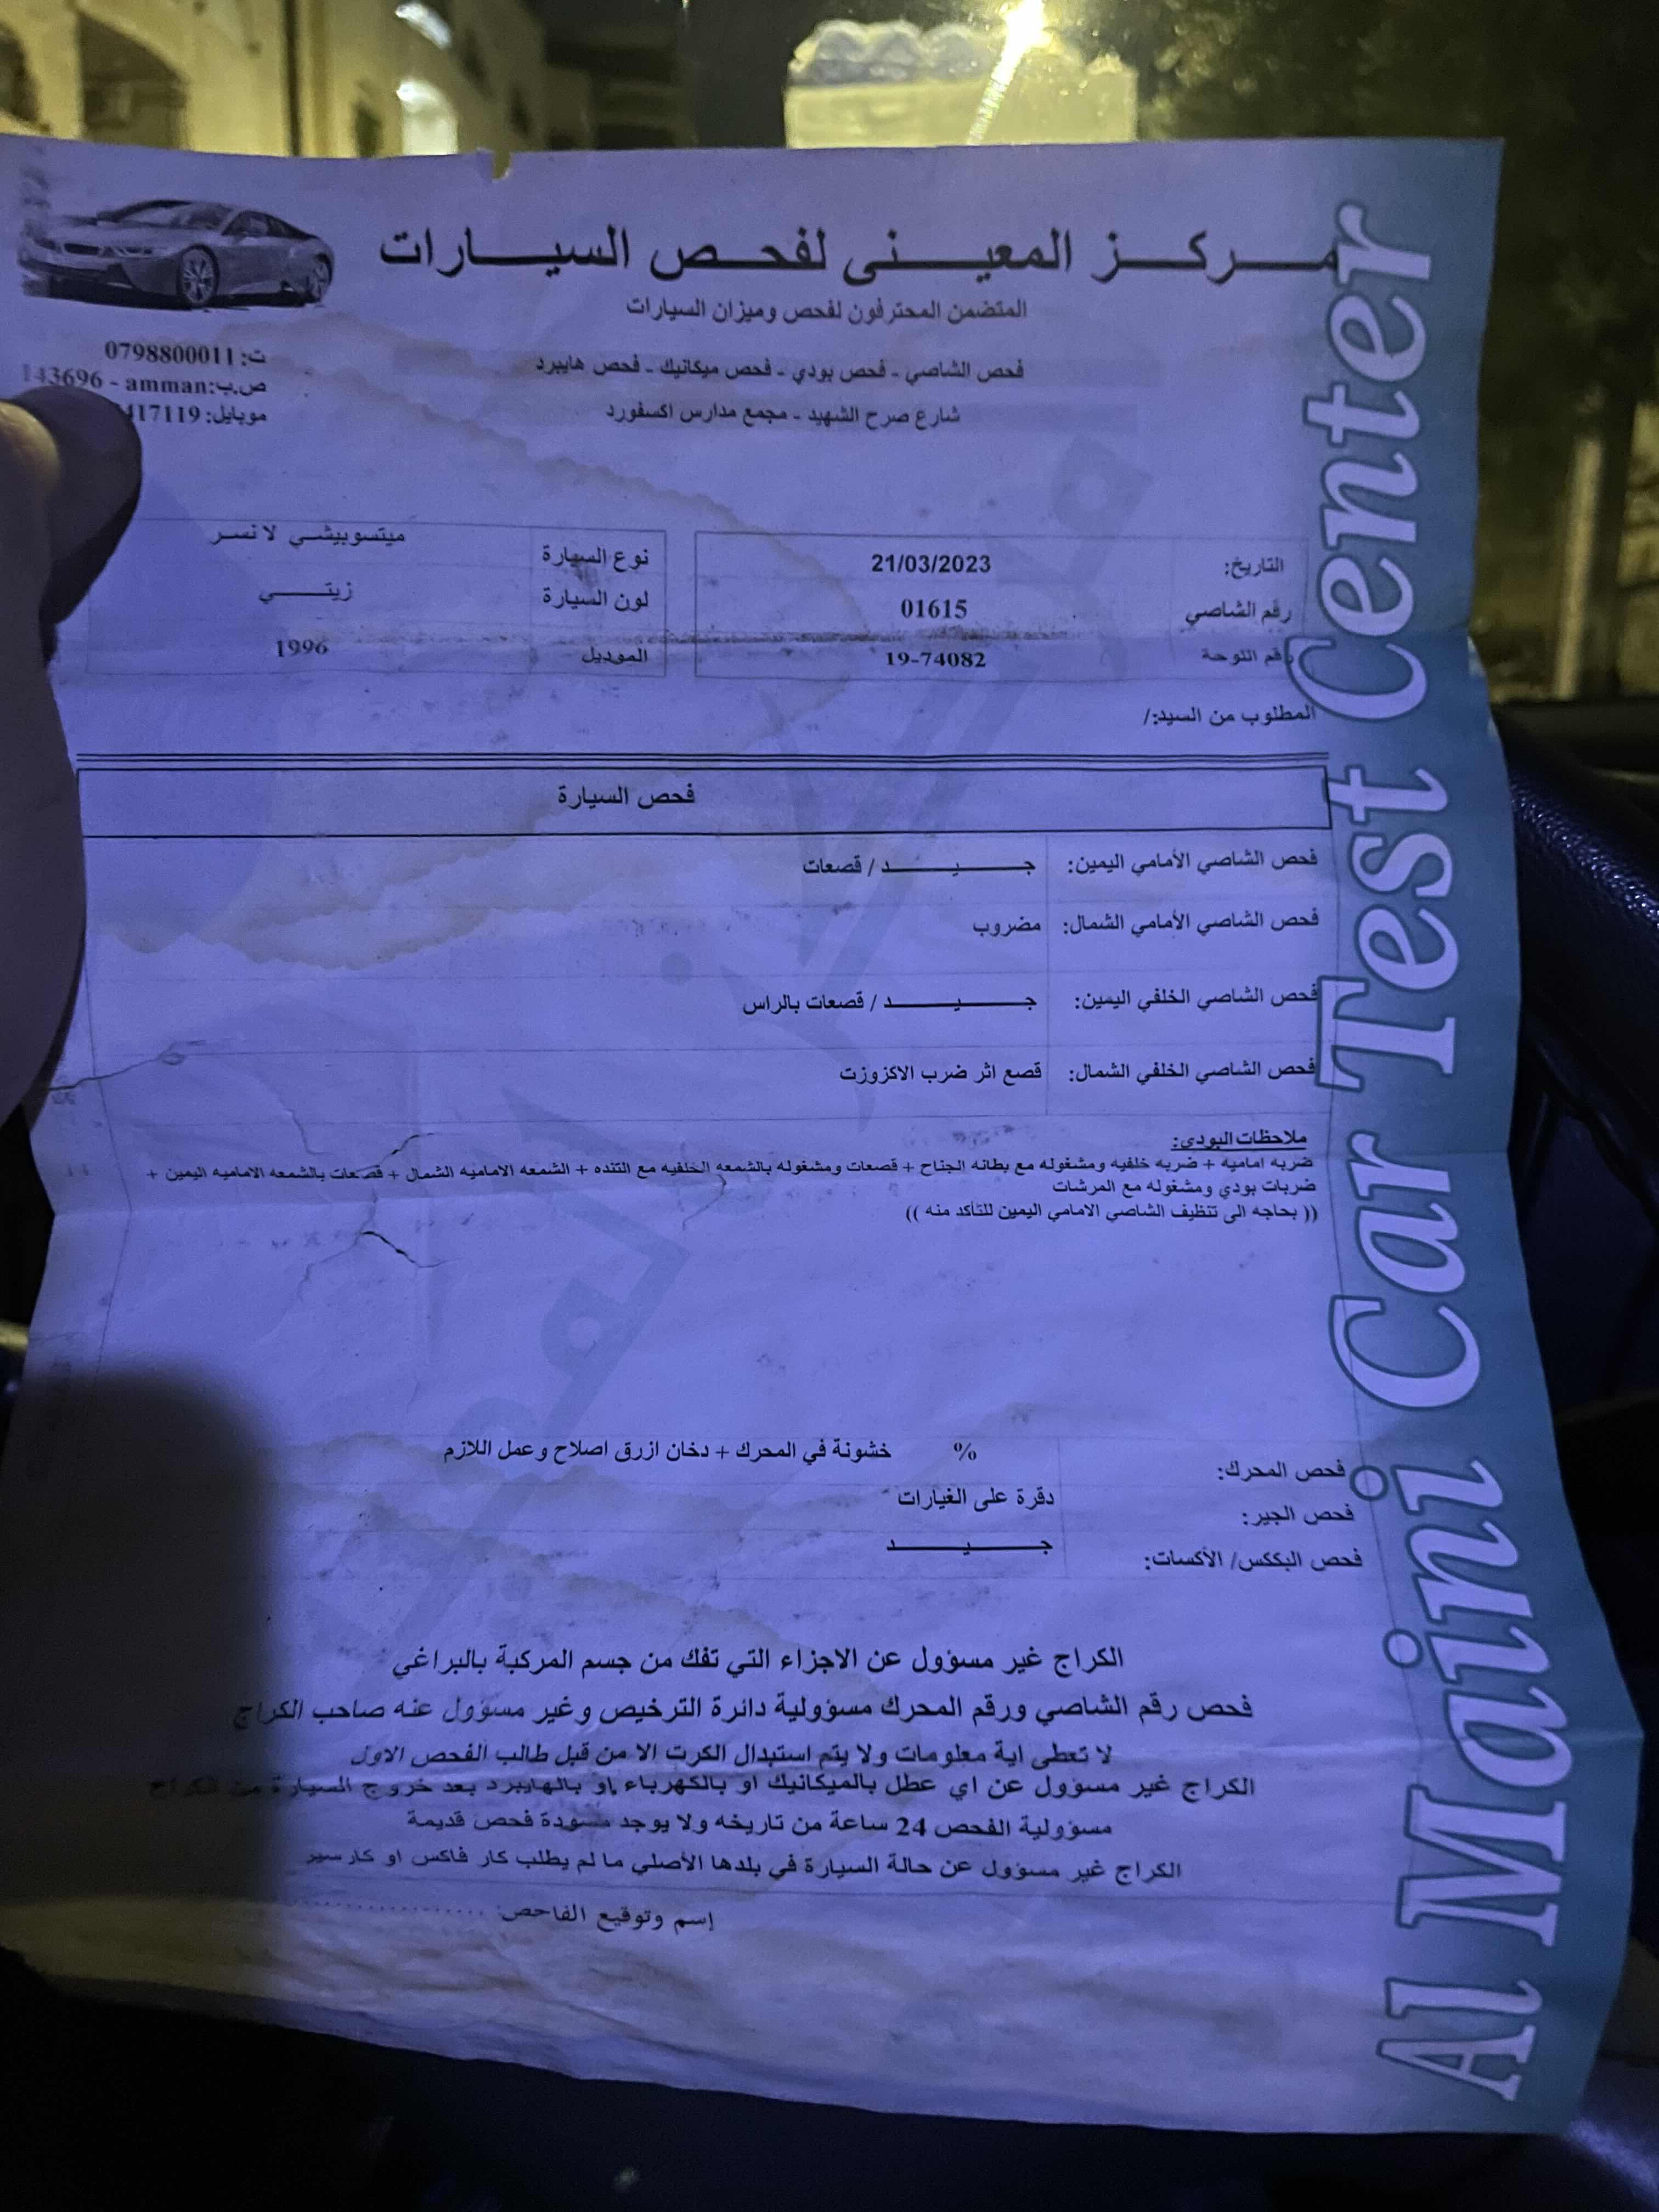 مركز المعيني لفحص السيارات
المتضمن المحترفون لفحص وميزان السيارات
فحص الشاصي - فحص بودي - فحص ميكانيك - فحص هايبرد
شارع صرح الشهيد - مجمع مدارس اكسفورد
ت: 0798800011
ص.ب: amman - 143696
موبايل: 417119
التاريخ: 21/03/2023
رقم الشاصي 01615
رقم اللوحة 19-74082
نوع السيارة ميتسوبيشي لانسر
لون السيارة زيتي
الموديل 1996
المطلوب من السيد:/
فحص السيارة
فحص الشاصي الأمامي اليمين: جيد / قصعات
فحص الشاصي الأمامي الشمال: مضروب
فحص الشاصي الخلفي اليمين: جيد / قصعات بالراس
فحص الشاصي الخلفي الشمال: قصع اثر ضرب الاكزوزت
ملاحظات البودي:
ضربه اماميه + ضربه خلفيه ومشغوله مع بطانه الجناح + قصعات ومشغوله بالشمعه الخلفيه مع التنده + الشمعه الاماميه الشمال + قصعات بالشمعه الاماميه اليمين +
ضربات بودي ومشغوله مع المرشات
(( بحاجه الى تنظيف الشاصي الامامي اليمين للتأكد منه ))
فحص المحرك: % خشونة في المحرك + دخان ازرق اصلاح وعمل اللازم
فحص الجير: دقرة على الغيارات
فحص البككس/ الأكسات: جيد
الكراج غير مسؤول عن الاجزاء التي تفك من جسم المركبة بالبراغي
فحص رقم الشاصي ورقم المحرك مسؤولية دائرة الترخيص وغير مسؤول عنه صاحب الكراج
لا تعطى اية معلومات ولا يتم استبدال الكرت الا من قبل طالب الفحص الاول
الكراج غير مسؤول عن اي عطل بالميكانيك او بالكهرباء او بالهايبرد بعد خروج السيارة من الكراج
مسؤولية الفحص 24 ساعة من تاريخه ولا يوجد مسودة فحص قديمة
الكراج غير مسؤول عن حالة السيارة في بلدها الأصلي ما لم يطلب كار فاكس او كارسير
إسم وتوقيع الفاحص: ..................
Al Maini Car Test Center